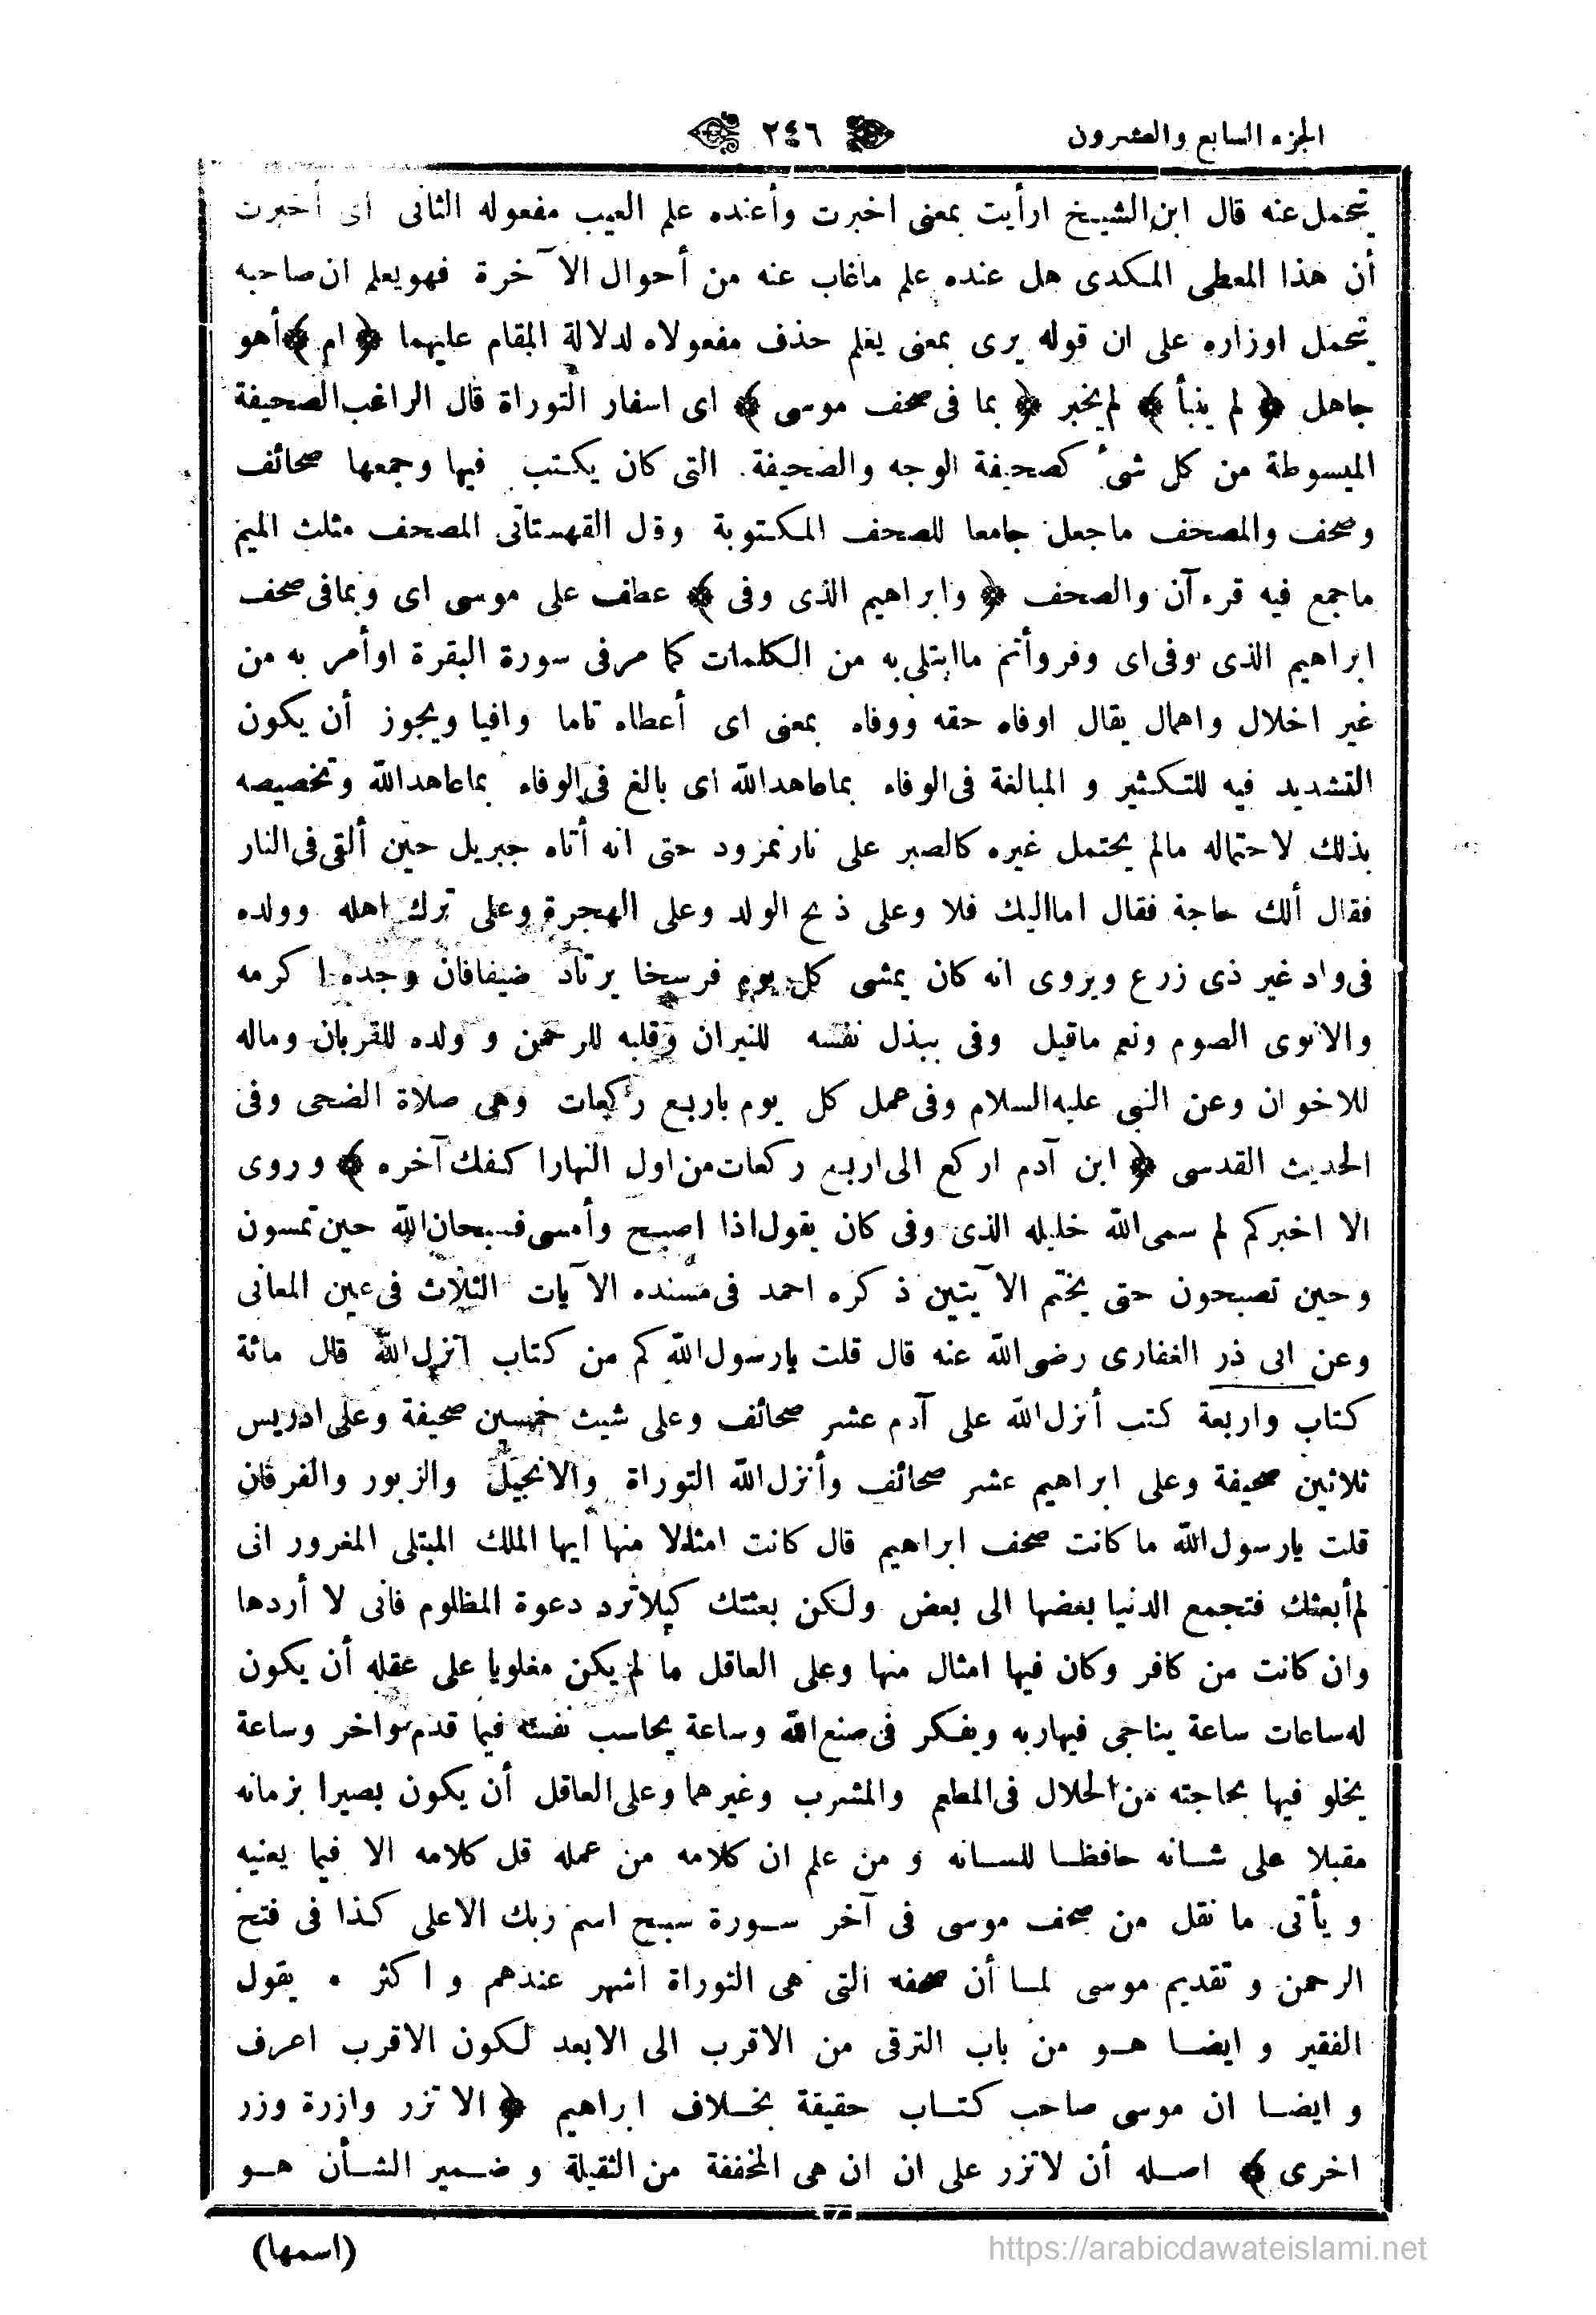 الجزء السابع والعشرون
٢٤٦
يتحمل عنه قال ابن الشيخ ارأيت بمعنى اخبرت وأعنده علم الغيب مفعوله الثانى اى أخبرت
أن هذا المعطى المكدى هل عنده علم ماغاب عنه من أحوال الآخرة فهو يعلم ان صاحبه
يتحمل اوزاره على ان قوله يرى بمعنى يعلم حذف مفعولاه لدلالة المقام عليهما ﴿ ام ﴾ أهو
جاهل ﴿ لم ينبأ ﴾ لم يخبر ﴿ بما فى صحف موسى ﴾ اى اسفار التوراة قال الراغب الصحيفة
المبسوطة من كل شىء كصحيفة الوجه والصحيفة التى كان يكتب فيها وجمعها صحائف
وصحف والمصحف ماجعل جامعا للصحف المكتوبة وقال القهستانى المصحف مثلث الميم
ماجمع فيه قرءآن والصحف ﴿ وابراهيم الذى وفى ﴾ عطف على موسى اى وبمافى صحف
ابراهيم الذى وفى اى وفر وأتم ماابتلى به من الكلمات كما مر فى سورة البقرة اوأمر به من
غير اخلال واهمال يقال اوفاه حقه ووفاه بمعنى اى أعطاه تاما وافيا ويجوز أن يكون
التشديد فيه للتكثير و المبالغة فى الوفاء بماعاهد الله اى بالغ فى الوفاء بماعاهد الله وتخصيصه
بذلك لاحتماله مالم يحتمل غيره كالصبر على نار نمرود حتى انه أتاه جبريل حين ألقى فى النار
فقال ألك حاجة فقال امااليك فلا وعلى ذبح الولد وعلى الهجرة وعلى ترك اهله وولده
فى واد غير ذى زرع ويروى انه كان يمشى كل يوم فرسخا يرتاد ضيفافان وجده ا كرمه
والانوى الصوم ونعم ماقيل وفى ببذل نفسه للنيران وقلبه للرحمن و ولده للقربان وماله
للاخوان وعن النبى عليه السلام وفى عمل كل يوم باربع ركعات وهى صلاة الضحى وفى
الحديث القدسى ﴿ ابن آدم اركع الى اربع ركعات من اول النهارا كفك آخره ﴾ وروى
الا اخبركم لم سمى الله خليله الذى وفى كان يقول اذا اصبح وأمسى فسبحان الله حين تمسون
وحين تصبحون حتى يختم الآيتين ذكره احمد فى مسنده الآيات الثلاث فى عين المعانى
وعن ابى ذر الغفارى رضى الله عنه قال قلت يارسول الله كم من كتاب انزل الله قال مائة
كتاب واربعة كتب أنزل الله على آدم عشر صحائف وعلى شيث خمسين صحيفة وعلى ادريس
ثلاثين صحيفة وعلى ابراهيم عشر صحائف وأنزل الله التوراة والانجيل والزبور والفرقان
قلت يارسول الله ما كانت صحف ابراهيم قال كانت امثالا منها ايها الملك المبتلى المغرور انى
لم أبعثك فتجمع الدنيا بعضها الى بعض ولكن بعثتك كيلا ترد دعوة المظلوم فانى لا أردها
وان كانت من كافر وكان فيها امثال منها وعلى العاقل ما لم يكن مغلوبا على عقله أن يكون
له ساعات ساعة يناجى فيها ربه ويفكر فى صنع الله وساعة يحاسب نفسه فيما قدم واخر وساعة
يخلو فيها بحاجته من الحلال فى المطعم والمشرب وغيرهما وعلى العاقل أن يكون بصيرا بزمانه
مقبلا على شانه حافظا للسانه و من علم ان كلامه من عمله قل كلامه الا فيما يعنيه
و يأتى ما نقل من صحف موسى فى آخر سورة سبح اسم ربك الاعلى كذا فى فتح
الرحمن و تقديم موسى لما أن صحفه التى هى التوراة اشهر عندهم و اكثر • يقول
الفقير و ايضا هو من باب الترقى من الاقرب الى الابعد لكون الاقرب اعرف
و ايضا ان موسى صاحب كتاب حقيقة بخلاف ابراهيم ﴿ الا تزر وازرة وزر
اخرى ﴾ اصله أن لاتزر على ان ان هى المخففة من الثقيلة و ضمير الشأن هو
(اسمها)
https://arabicdawateislami.net